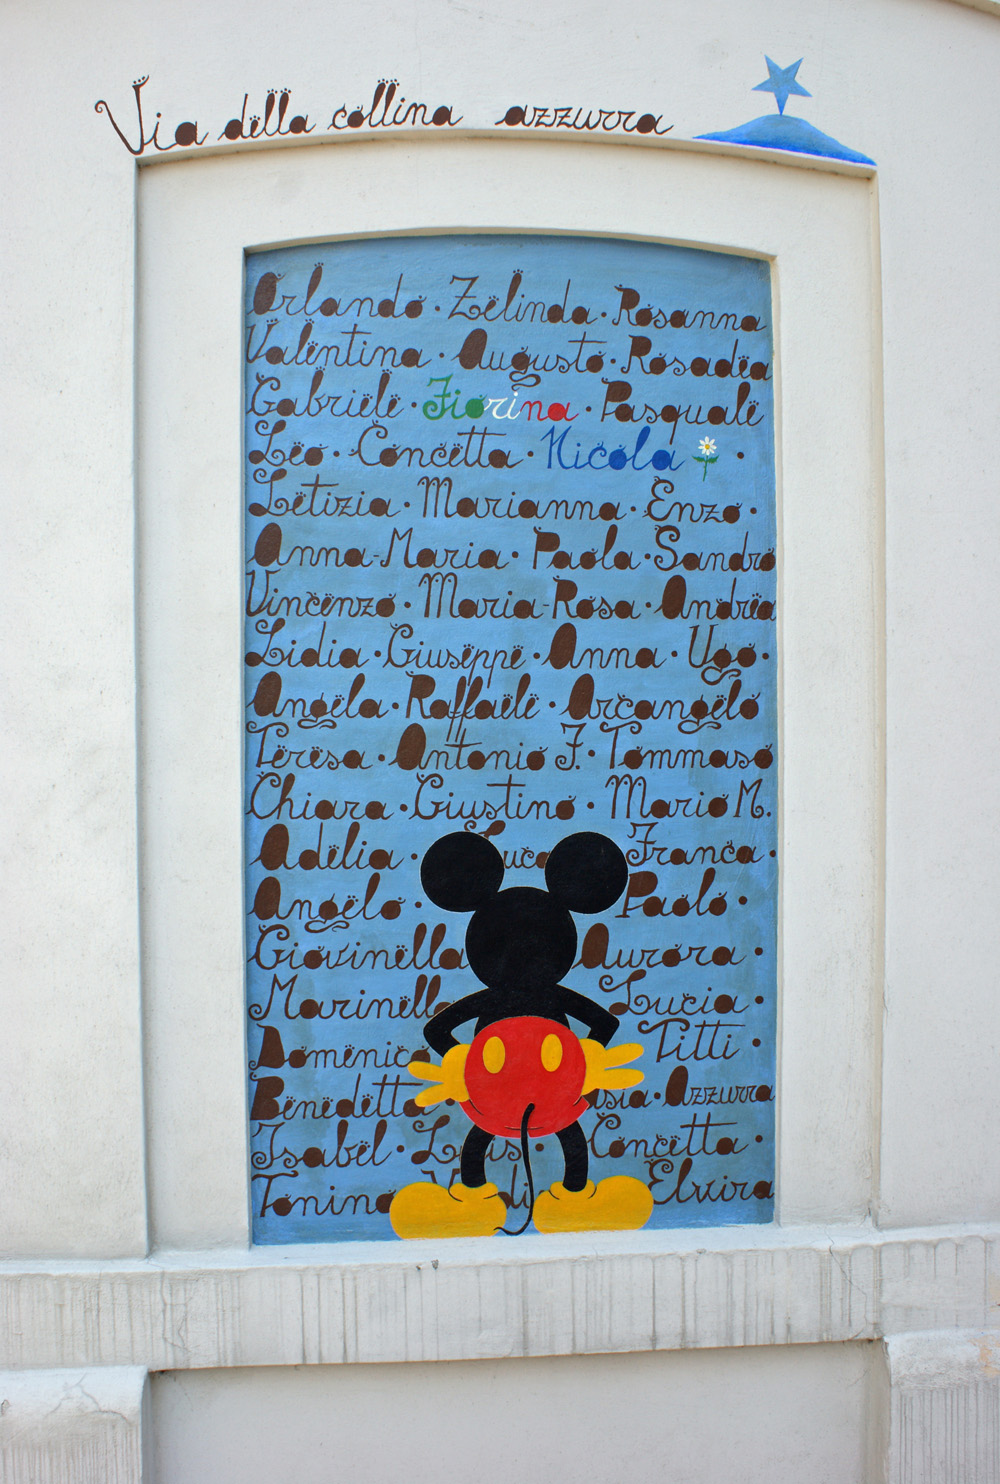 Via della collina azzurra
Orlando · Zelinda · Rosanna
Valentina · Augusto · Rosadea
Gabriele · Fiorina · Pasquale
Leo · Concetta · Nicola ·
Letizia · Marianna · Enzo ·
Anna-Maria · Paola · Sandro
Vincenzo · Maria-Rosa · Andrea
Lidia · Giuseppe · Anna · Ugo ·
Angela · Raffaele · Arcangelo
Teresa · Antonio F. · Tommaso
Chiara · Giustino · Mario M.
Adelia · Luca Franca ·
Angelo · Paolo ·
Giovinella Aurora ·
Marinella Lucia ·
Domenico Titti ·
Benedetta · Azzurra
Isabel · Concetta ·
Tonino Elvira